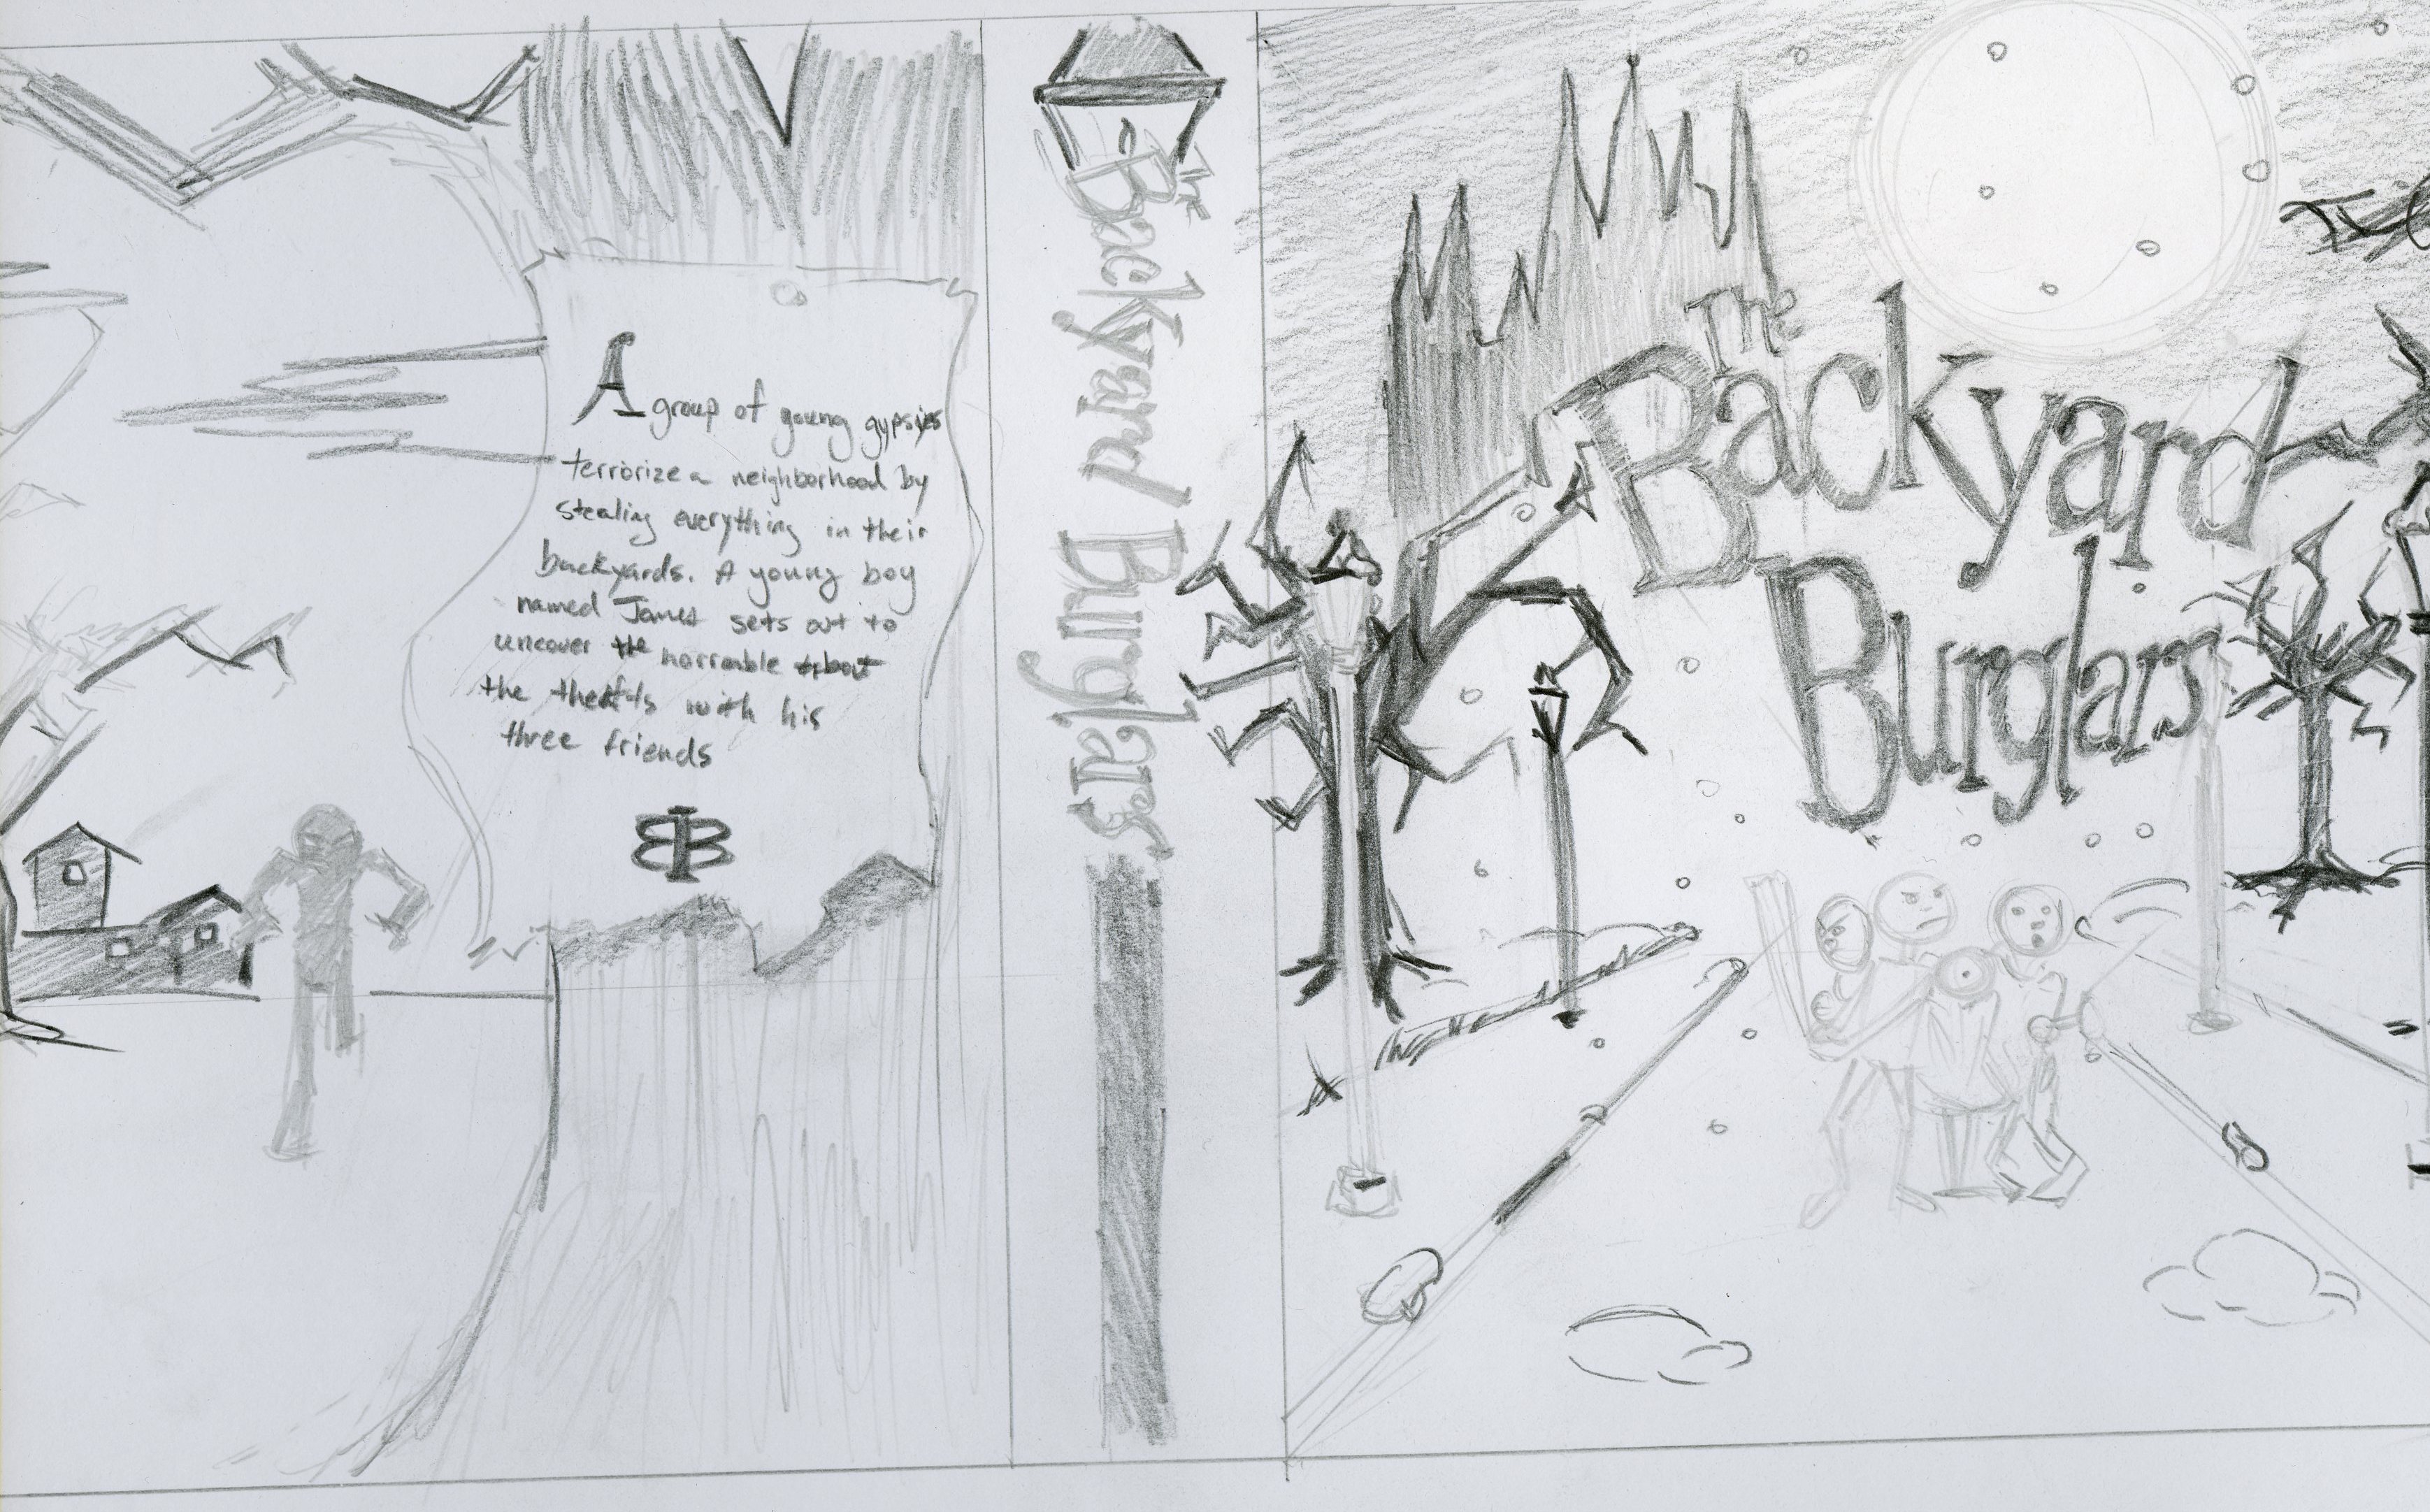 A group of young gypsies
terrorize a neighborhood by
stealing everything in their
backyards. A young boy
named James sets out to
uncover the horrorable
the thefts with his
three friends
BB
Backyard Burglars
The
Backyard
Burglars